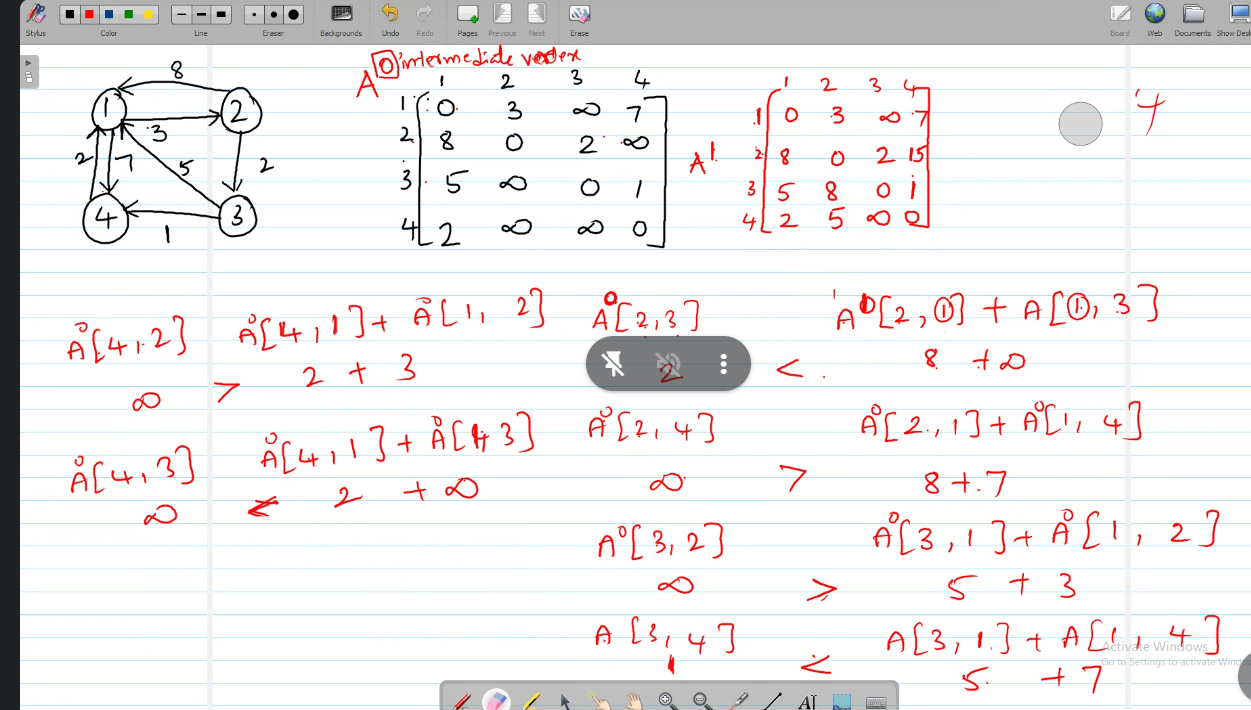 Stylus Color Line Eraser Backgrounds Undo Redo Pages Previous Next Erase Board Web Documents Show Desk
A 0 intermediate vertex
1 2 3 4
1 0 3 ∞ 7
2 8 0 2 ∞
3 5 ∞ 0 1
4 2 ∞ ∞ 0
A¹
1 2 3 4
1 0 3 ∞ 7
2 8 0 2 15
3 5 8 0 1
4 2 5 ∞ 0
4
8
1 2
3
2 7 5 2
4 3
1
A⁰[4,2] A⁰[4,1] + A⁰[1, 2]
∞ > 2 + 3
A⁰[4,3] A⁰[4,1] + A⁰[1 3]
∞ < 2 + ∞
A⁰[2,3] A⁰[2,①] + A[①,3]
2 < 8 + ∞
A⁰[2,4] A⁰[2,1] + A⁰[1,4]
∞ > 8+7
A⁰[3,2] A⁰[3,1] + A⁰[1, 2]
∞ > 5 + 3
A[3,4] A[3,1] + A[1,4]
1 < 5 + 7
Activate Windows
Go to Settings to activate Wind